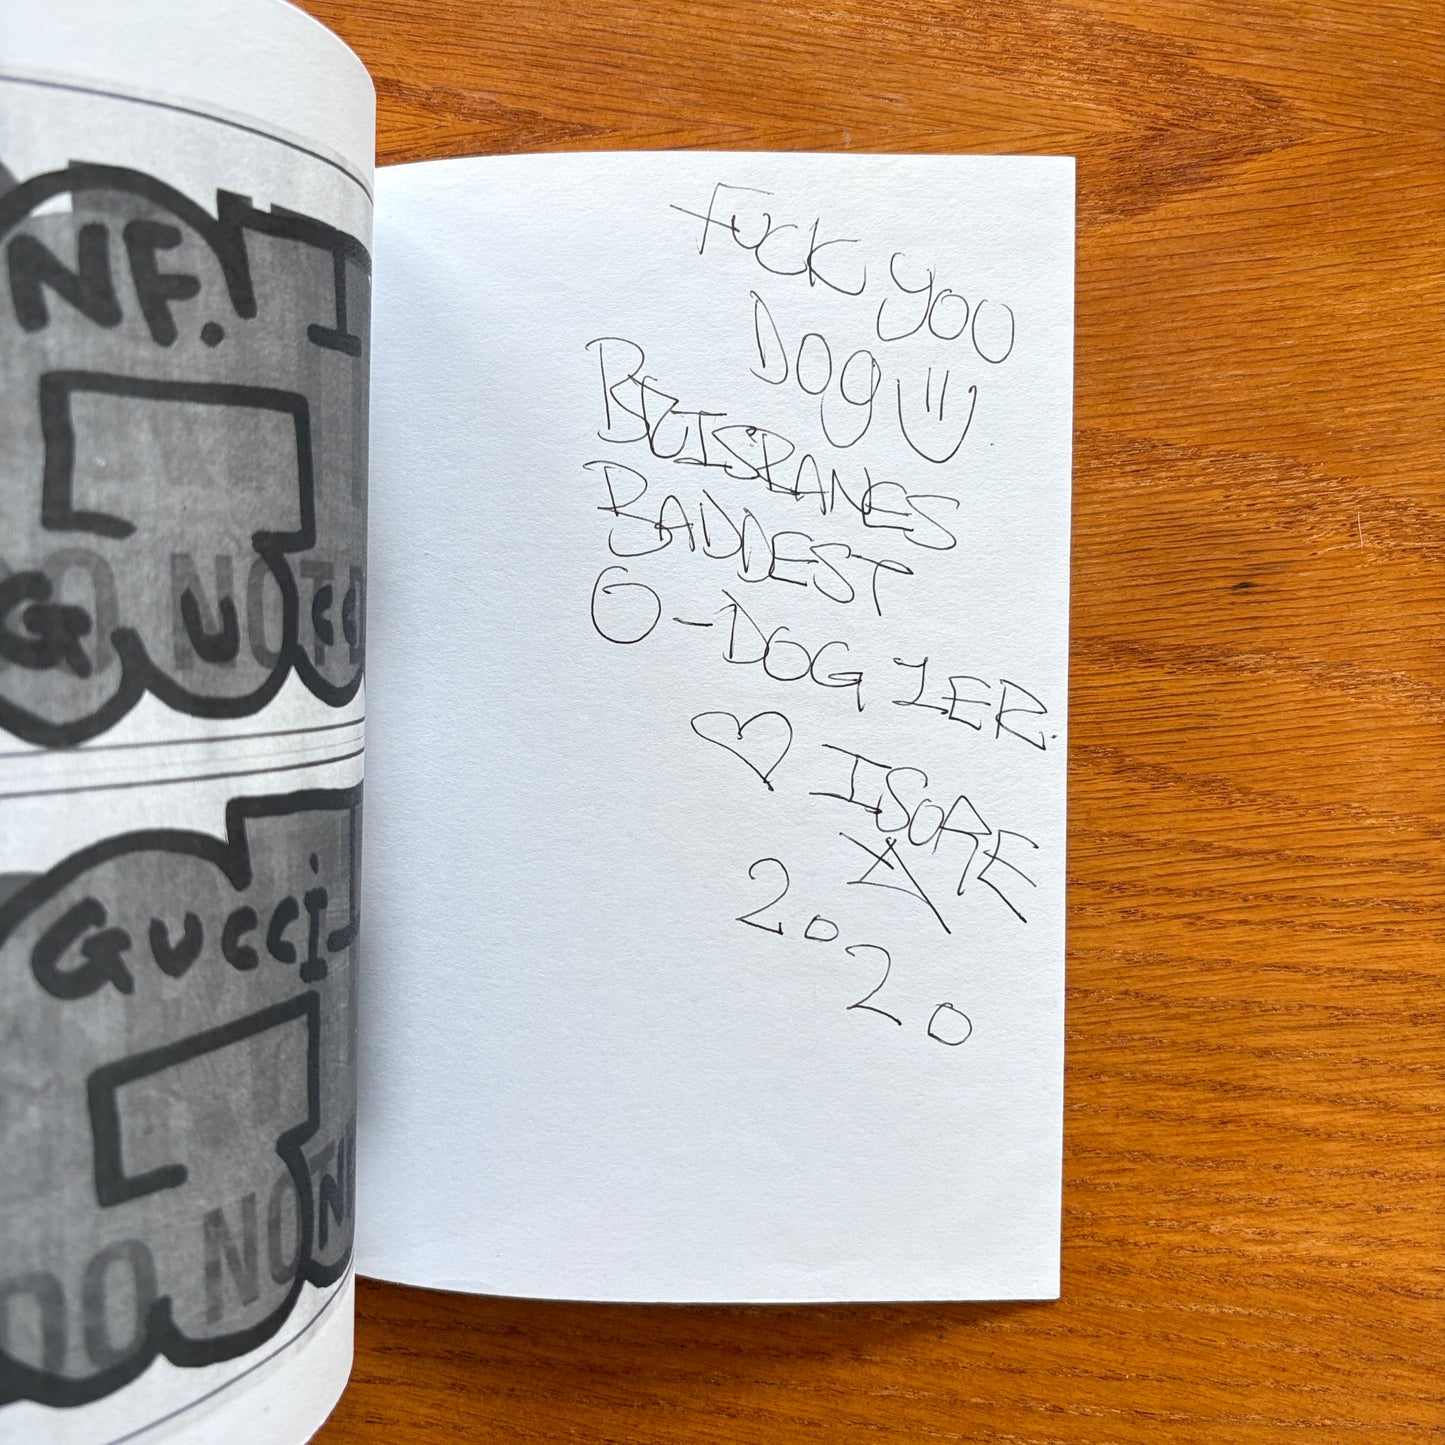 NF. I
GO NOT D
G U CC
GUCCI
DO NO
N
Fuck you
Dog
BRISBANES
BADDEST
O-DOG 1ER.
ISORE
2020